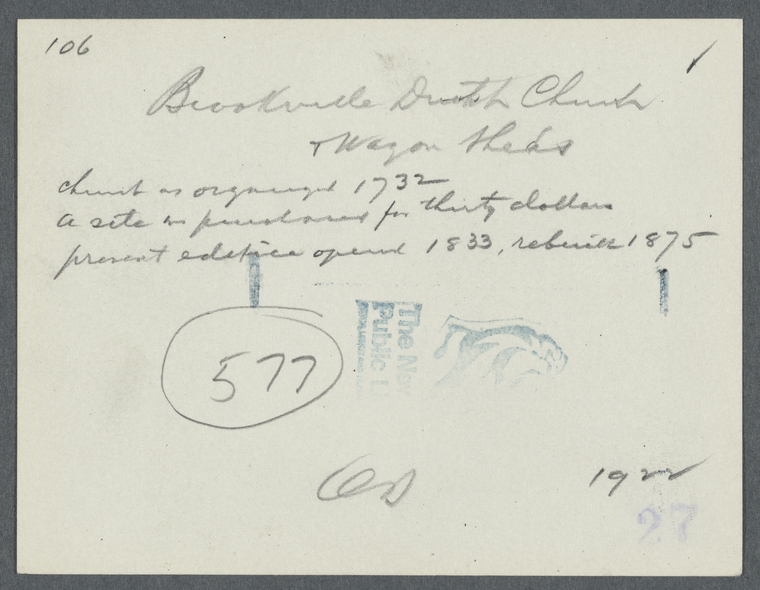 106
Brookville Dutch Church
& Wagon Sheds
church as organized 1732
a site was purchased for thirty dollars
present edifice opened 1833, rebuilt 1875
The New
Public Li
577
1922
27